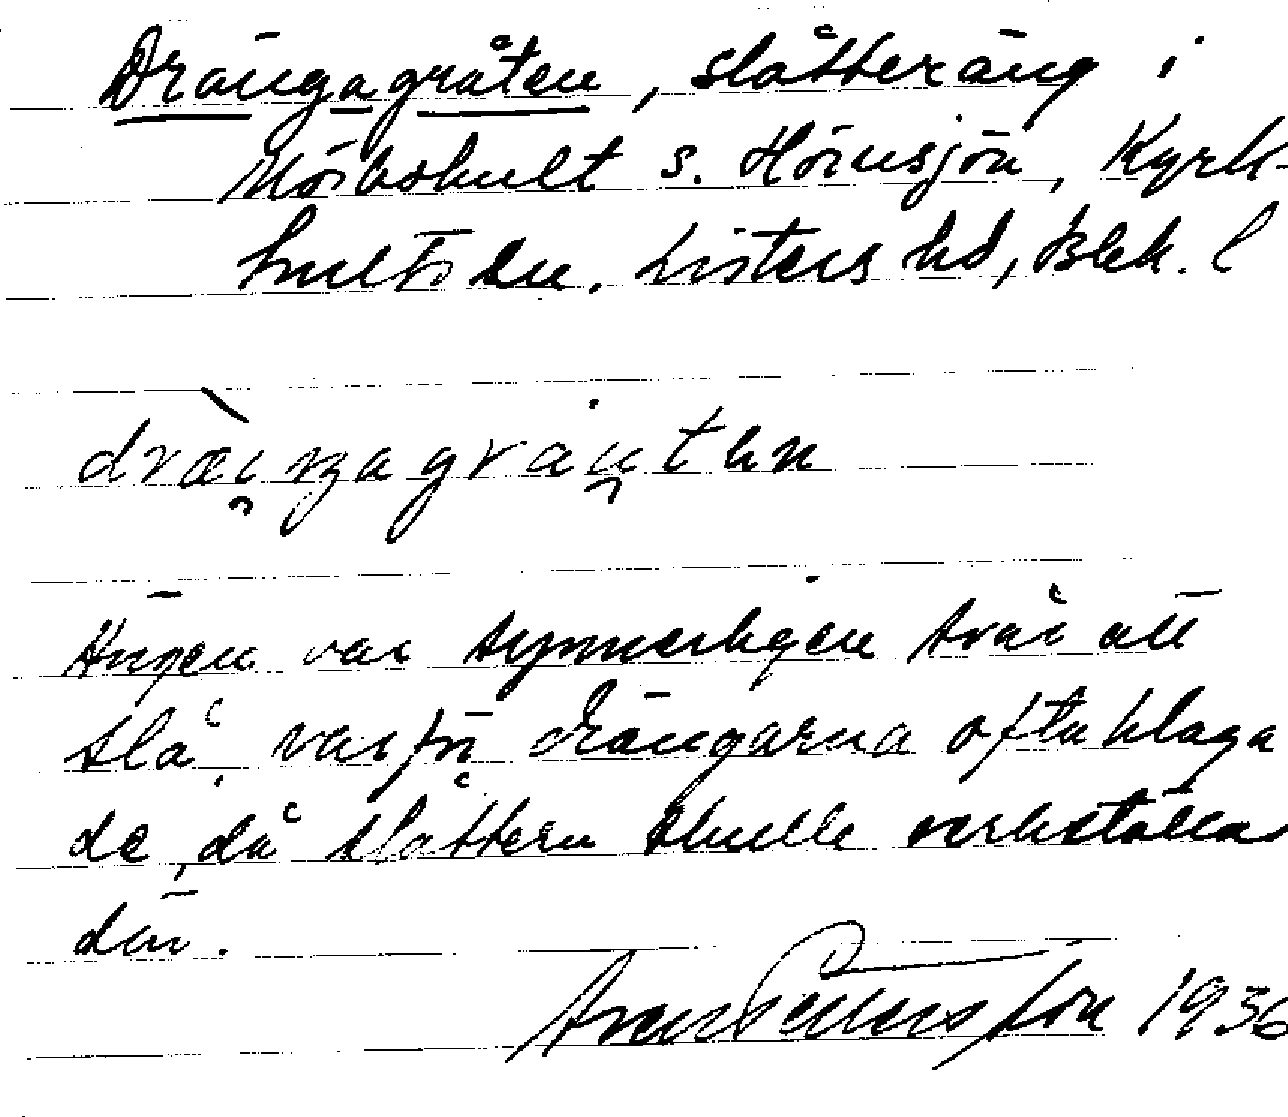 Drängagråten, slåtteräng i
Mörkhult s. Hörnsjön, Kyrk-
hults sn. Listers hd, Blek. l
dræi̯ŋagrau̯ten
Ängen var synnerligen svår att
slå, varför drängarna ofta klaga
de, då slåttern skulle verkställas
där.
Sven Petersson 1936